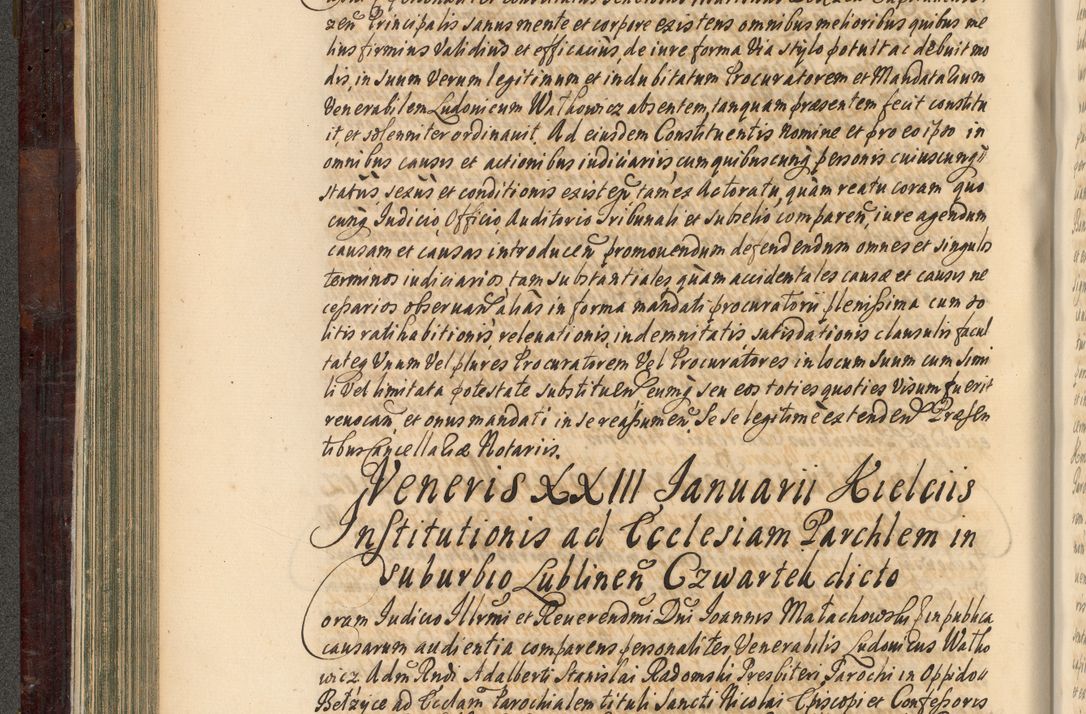 zeń Principalis sanus mente et corpore existens omnibus melioribus quibus me
lius firmius validius et efficacius, de iure forma via stylo potuit ac debuit mo
dis, in suum verum legitimum et indubitatum Procuratorem et Mandatarium
Venerabilem Ludovicum Wathowicz absentem, tanquam præsentem fecit constitu
it, et solenniter ordinavit. Ad eiusdem Constituentis nomine et pro eo ipso in
omnibus causis et actionibus iudiciariis, cum quibuscunq personis cuiuscunq
status sexus et conditionis existeñ tam ex Actoratu, quam reatu coram quo
cunq Iudicio, Officio, Auditorio Tribunali et subselio, compareñ, iure agendum
causam et causas introduceñ promovendum defendendum omnes et singulos
terminos iudiciarios tam substantiales quam accidentales causæ et causis ne
cessarios observañ alias in forma mandati procuratorii plenissima cum so
litis ratihabitionis relevationis, indemnitatis satisdationis clausulis facul
tateq Unum Vel plures Procuratorem Vel Procuratores in locum suum cum simi
li Vel limitata potestate substitueñ eumq seu eos toties quoties Visum fuerit
revocañ et onus mandati in se reassumeñ. Se se legitime extendeñ Præsen
tibus Cancellariæ Notariis.
Veneris XXIII Januarii Kielciis
Institutionis ad Ecclesiam Parchlem in
suburbio Lublineñ Czwartek dicto
Coram Iudicio Illrmi et Reverendmi Dni Joannis Małachowski E in publica
causarum audientia comparens personaliter Venerabilis Ludovicus Watho
wicz Adm Rndi Adalberti Stanislai Radomski Presbiteri Parochi in Oppido
Bełżyce ad Ecclam Parochialem tituli Sancti Nicolai Episcopi et Confessoris